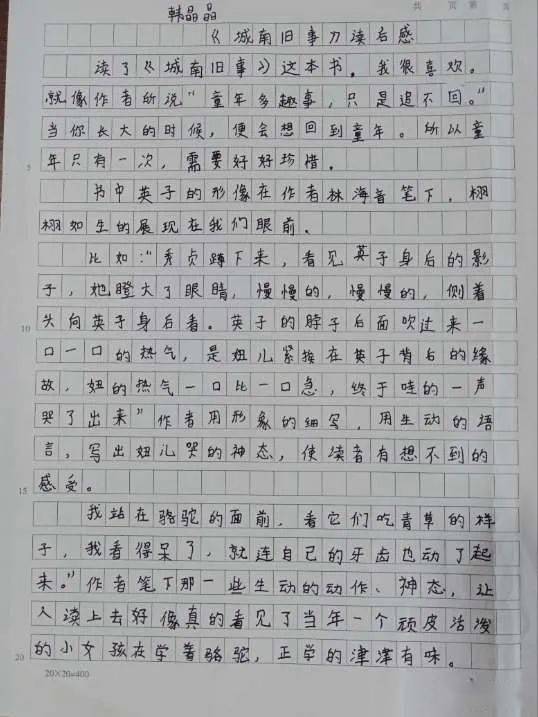 共 页 第 页
韩晶晶
《城南旧事》读后感
读了《城南旧事》这本书。我很喜欢。
就像作者所说“童年多趣事，只是追不回。”
当你长大的时候，便会想回到童年。所以童
5 年只有一次，需要好好珍惜。
书中英子的形像在作者林海音笔下，栩
栩如生的展现在我们眼前、
比如：“秀贞蹲下来，看见英子身后的影
子，她瞪大了眼睛，慢慢的，慢慢的，侧着
10 头向英子身后看。英子的脖子后面吹过来一
口一口的热气，是妞儿紧挨在英子背后的缘
故，妞的热气一口比一口急，终于哇的一声
哭了出来”作者用形象的细写，用生动的语
言，写出妞儿哭的神态，使读者有想不到的
15 感受。
我站在骆驼的面前，看它们吃青草的样
子，我看得呆了，就连自己的牙齿也动了起
来。”作者笔下那一些生动的动作、神态，让
人读上去好像真的看见了当年一个顽皮活泼
20 的小女孩在学着骆驼，正单的津津有味。
20×20=400